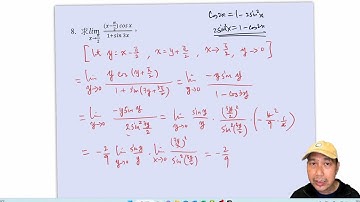 8. 求 lim_{x→π/2} (x-π/2)cos x / (1+sin 3x) .
cos2x = 1-2sin²x
2sin²x = 1-cos2x
[ Let y = x-π/2 , x = y+π/2 , x→π/2 , y→0 ]
= lim_{y→0} y cos(y+π/2) / (1+sin(3y+3π/2)) = lim_{y→0} -y sin y / (1-cos3y)
= lim_{y→0} -y sin y / (2sin² 3y/2) = lim_{y→0} sin y / y · (3y/2)² / sin²(3y/2) · (-4/9 · 1/2)
= -2/9 lim_{y→0} sin y / y · lim_{x→0} (3y/2)² / sin²(3y/2) = -2/9